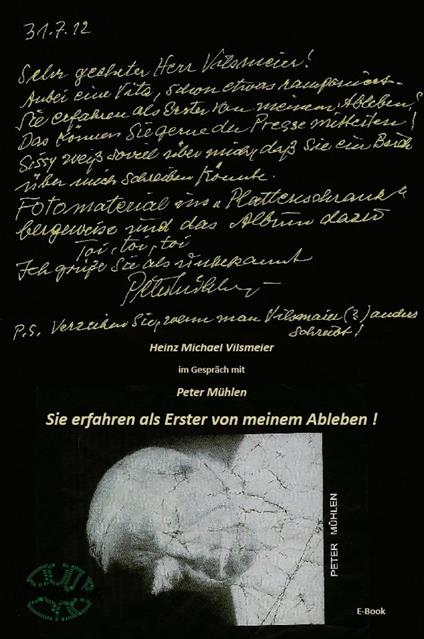 31.7.12
Sehr geehrter Herr Vilsmeier!
Anbei eine Vita, schon etwas ramponiert-
Sie erfahren als Erster von meinem Ableben,
Das können Sie gerne der Presse mitteilen!
Sissy weiß soviel über mich, daß Sie ein Buch
über mich schreiben könnte.
Fotomaterial ins "Plattenschrank"
bergeweise und das Album dazu
Toi, toi, toi
Ich grüße Sie als unbekannt
Peter Mühlen
P.S. Verzeihen Sie, wenn man Vilsmaier (?) anders
schreibt!
Heinz Michael Vilsmeier
im Gespräch mit
Peter Mühlen
Sie erfahren als Erster von meinem Ableben !
PETER MÜHLEN
E-Book